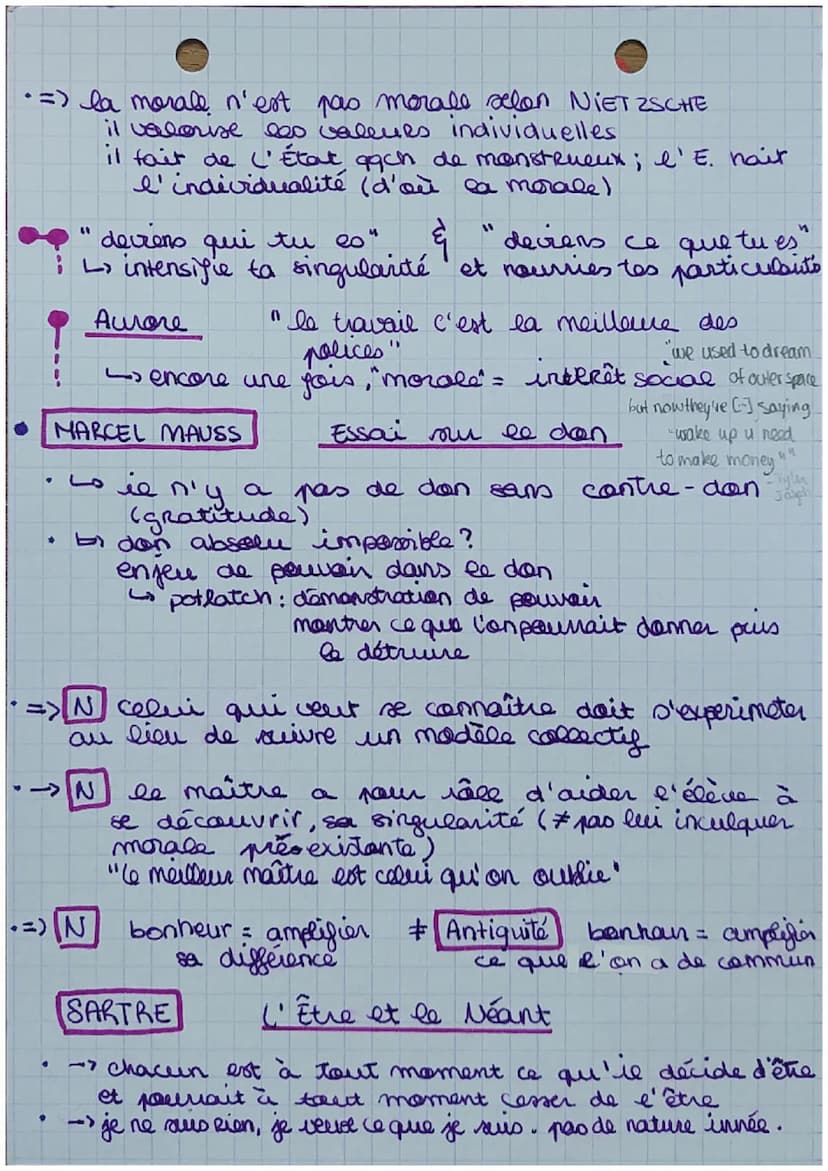 • => la morale n'est pas morale selon NIETZSCHE
il valorise les valeurs individuelles
il fait de l'État qqch de monstrueux ; l'E. nait
l'individualité (d'où sa morale)
"deviens qui tu es" & "deviens ce que tu es"
↳ intensifie ta singularité et nourries tes particularités
Aurore "le travail c'est la meilleure des
polices"
↳ encore une fois, "morale" = intérêt social
"we used to dream
of outer space
but now they're [-] saying
"wake up u need
to make money""
- Tyler
Joseph
• MARCEL MAUSS Essai sur le don
• ↳ il n'y a pas de don sans contre-don
(gratitude)
• ↳ don absolu impossible ?
enjeu de pouvoir dans le don
↳ potlatch : démonstration de pouvoir
montrer ce que l'on pourrait donner puis
le détruire
• => N celui qui veut se connaître doit s'experimeter
au lieu de suivre un modèle collectif
• -> N le maître a pour rôle d'aider l'élève à
se découvrir, sa singularité (≠ pas lui inculquer
morale préexistante)
"le meilleur maître est celui qu'on oublie"
• => N bonheur = amplifier ≠ Antiquité bonheur = amplifier
sa différence ce que l'on a de commun
SARTRE L'Être et le Néant
• -> chacun est à tout moment ce qu'il décide d'être
et pourrait à tout moment cesser de l'être
• -> je ne suis rien, je veux ce que je suis. pas de nature innée.